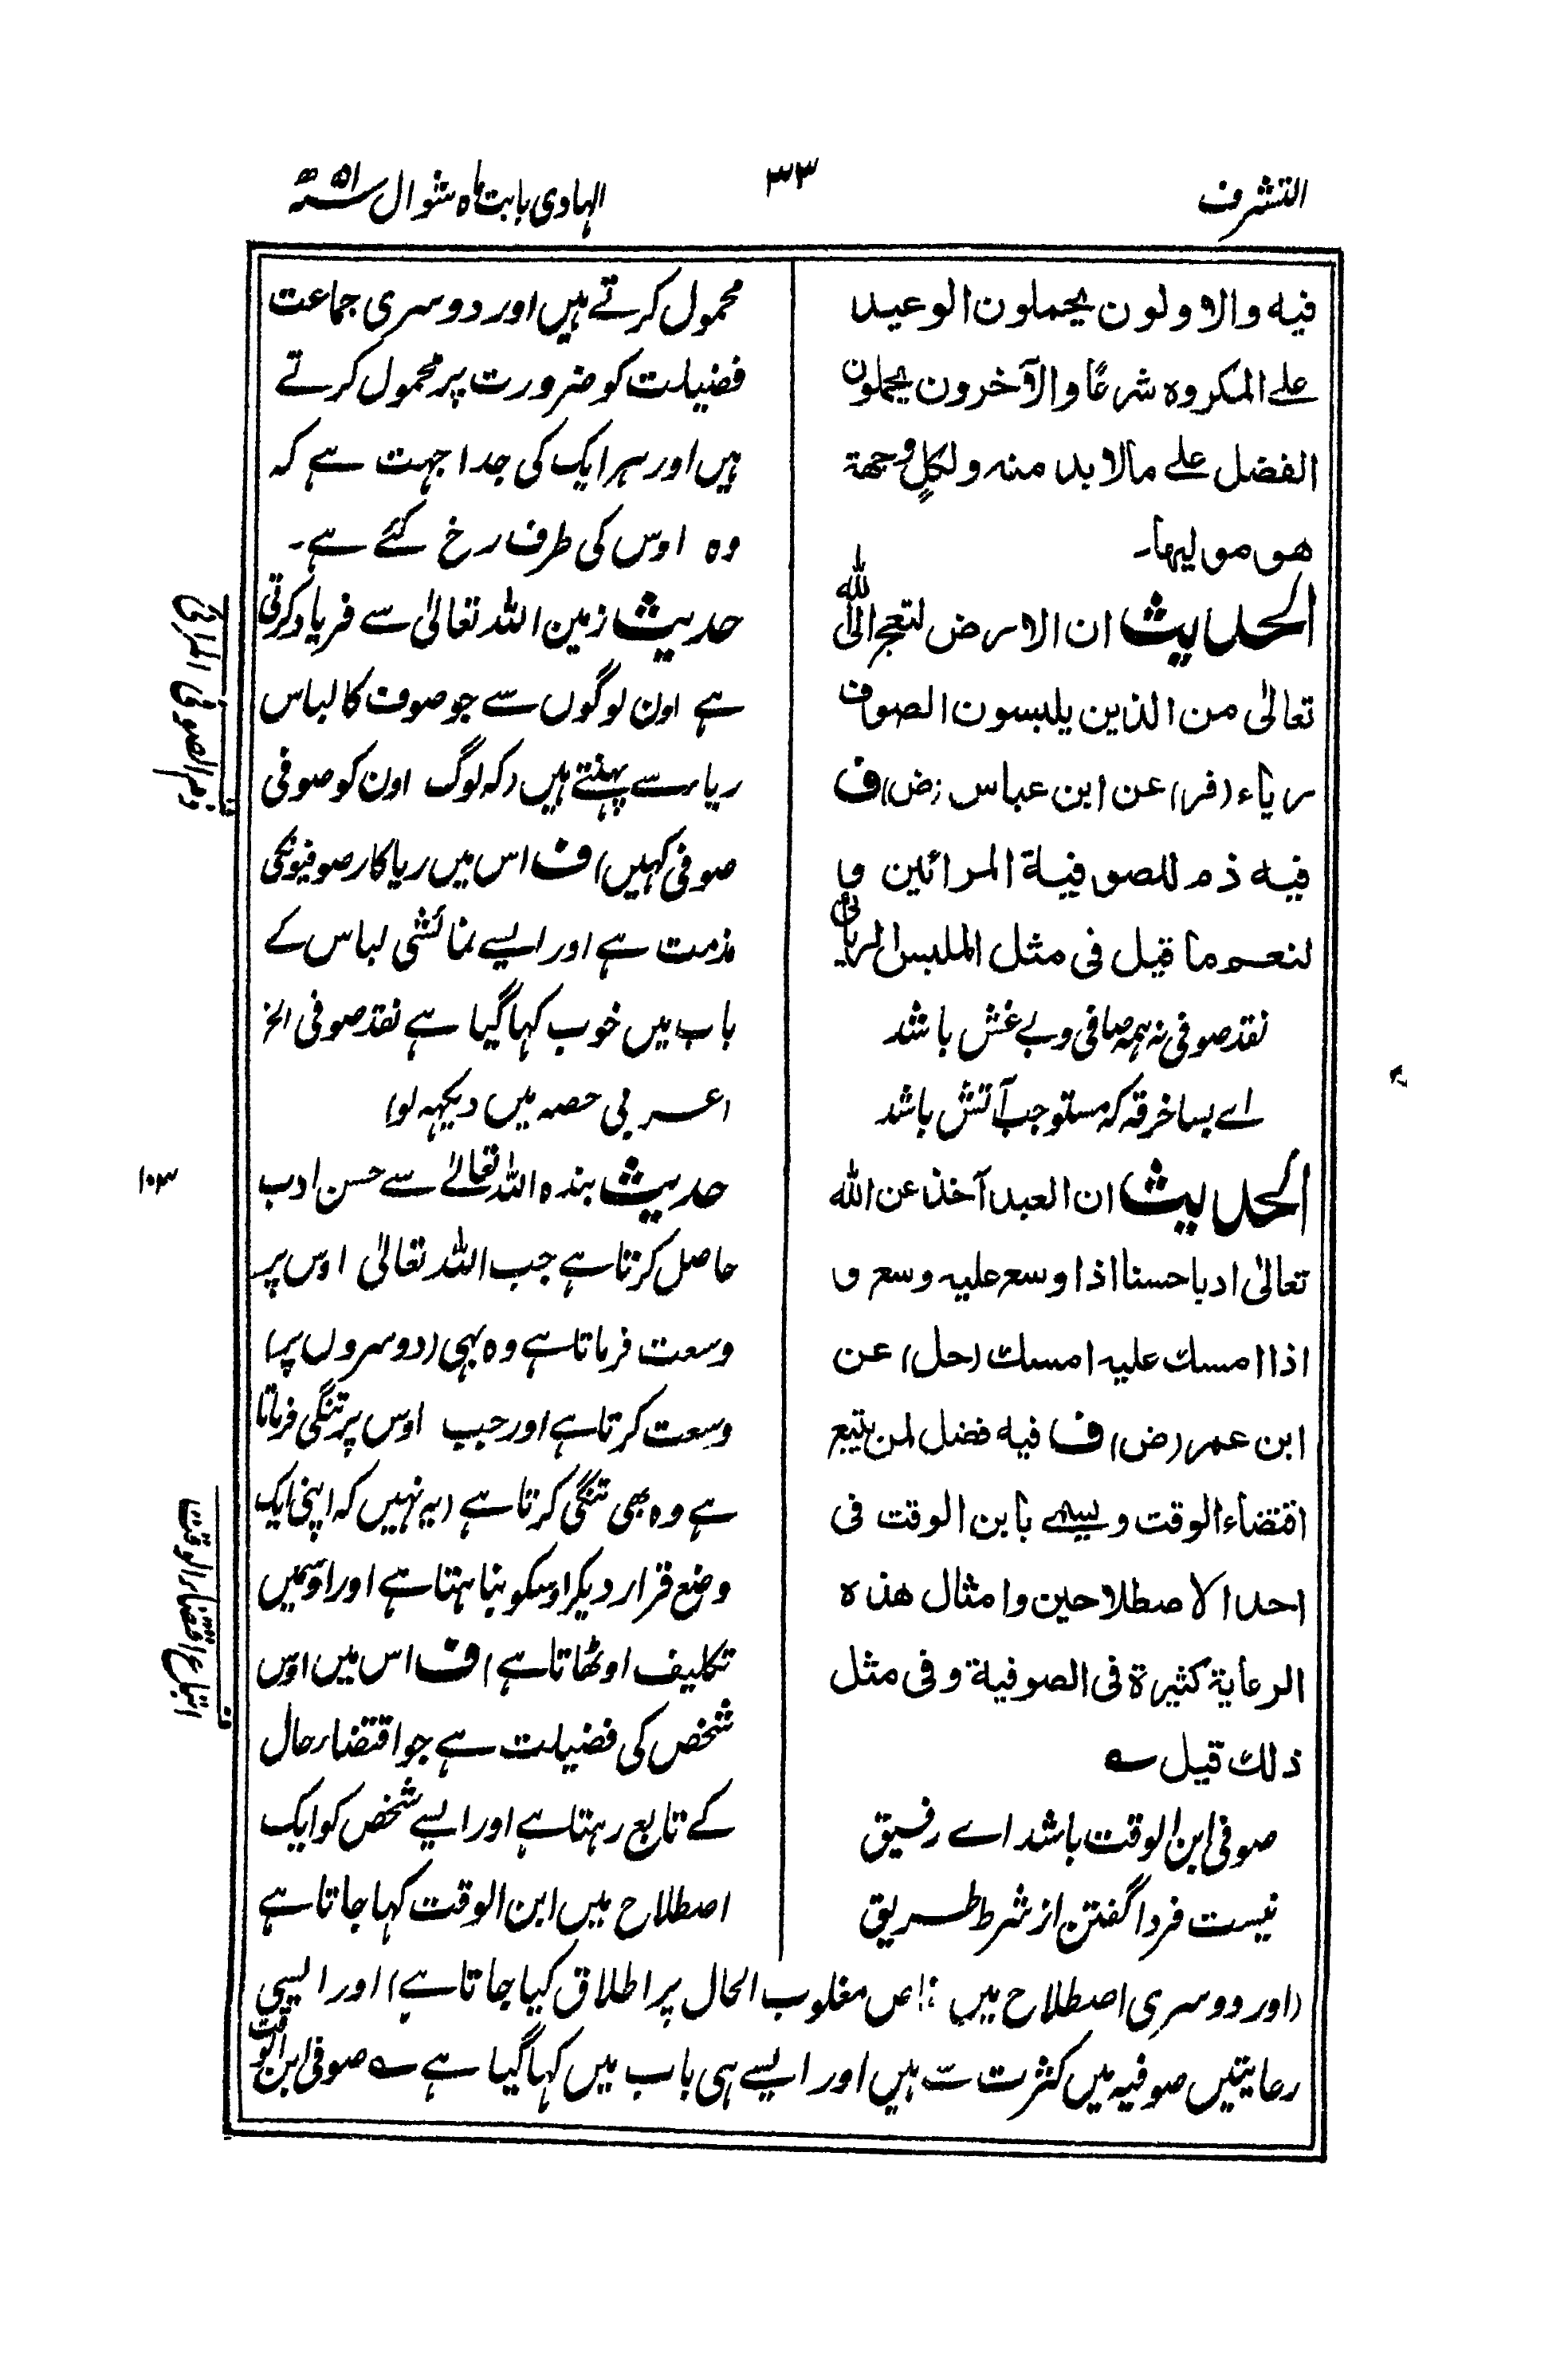 التشرف
۳۳
الہادی بابت ماہ شوال ۵۱ھ
فیہ والاولون یحملون الوعید
علے المکروہ شرعًا والآخرون یحملون
الفضل علے مالا بد منہ ولکلٍ وجھة
ھو مولیہا۔
الحدیث ان الارض لتعج الی اللہ
تعالیٰ من الذین یلبسون الصوف
ریاء (فر) عن ابن عباس (ض) ف
فیہ ذم للصوفیة المرائین و
لنعم ما قیل فی مثل الملبس الریائی
نقد صوفی نہ ہمہ صافی و بے غش باشد
اے بسا خرقہ کہ مستوجب آتش باشد
الحدیث ان العبد آخذ عن اللہ
تعالیٰ ادبا حسنا اذا وسع علیہ وسع و
اذا امسك علیہ امسك (حل) عن
ابن عمر (ض) ف فیہ فضل لمن یتبع
اقتضاء الوقت ویسمے بابن الوقت فی
احد الاصطلاحین وامثال ھذہ
الرعایة کثیرة فی الصوفیة وفی مثل
ذلك قیل ؎
صوفی ابن الوقت باشد اے رفیق
نیست فردا گفتن از شرط طریق
محمول کرتے ہیں اور دوسری جماعت
فضیلت کو ضرورت پر محمول کرتے
ہیں اور ہر ایک کی جدا جہت ہے کہ
وہ اوس کی طرف رخ کئے ہے۔
حدیث زمین اللہ تعالیٰ سے فریاد کرتی
ہے اون لوگوں سے جو صوف کا لباس
ریاء سے پہنتے ہیں (کہ لوگ اون کو صوفی
صوفی کہیں) ف اس میں ریاکار صوفیونکی
مذمت ہے اور ایسے نمائشی لباس کے
باب میں خوب کہا گیا ہے نقد صوفی الخ
(عربی حصہ میں دیکہہ لو)
حدیث بندہ اللہ تعالےٰ سے حسن ادب
حاصل کرتا ہے جب اللہ تعالیٰ اوس پر
وسعت فرماتا ہے وہ بہی (دوسروں پر)
وسعت کرتا ہے اور جب اوس پر تنگی فرماتا
ہے وہ بھی تنگی کرتا ہے (یہ نہیں کہ اپنی ایک
وضع قرار دیکر اوسکو بنا ہتا ہے اور اوسمیں
تکلیف اوٹھاتا ہے) ف اس میں اوس
شخص کی فضیلت ہے جو اقتضاء حال
کے تابع رہتا ہے اور ایسے شخص کو ایک
اصطلاح میں ابن الوقت کہا جاتا ہے
(اور دوسری اصطلاح میں خاص مغلوب الحال پر اطلاق کیا جاتا ہے) اور ایسی
رعایتیں صوفیہ میں کثرت سے ہیں اور ایسے ہی باب میں کہا گیا ہے ؎ صوفی ابن الوقت
ف ذم الصوفی المرائی
۱۰۳
ف اتباع اقتضاء الوقت